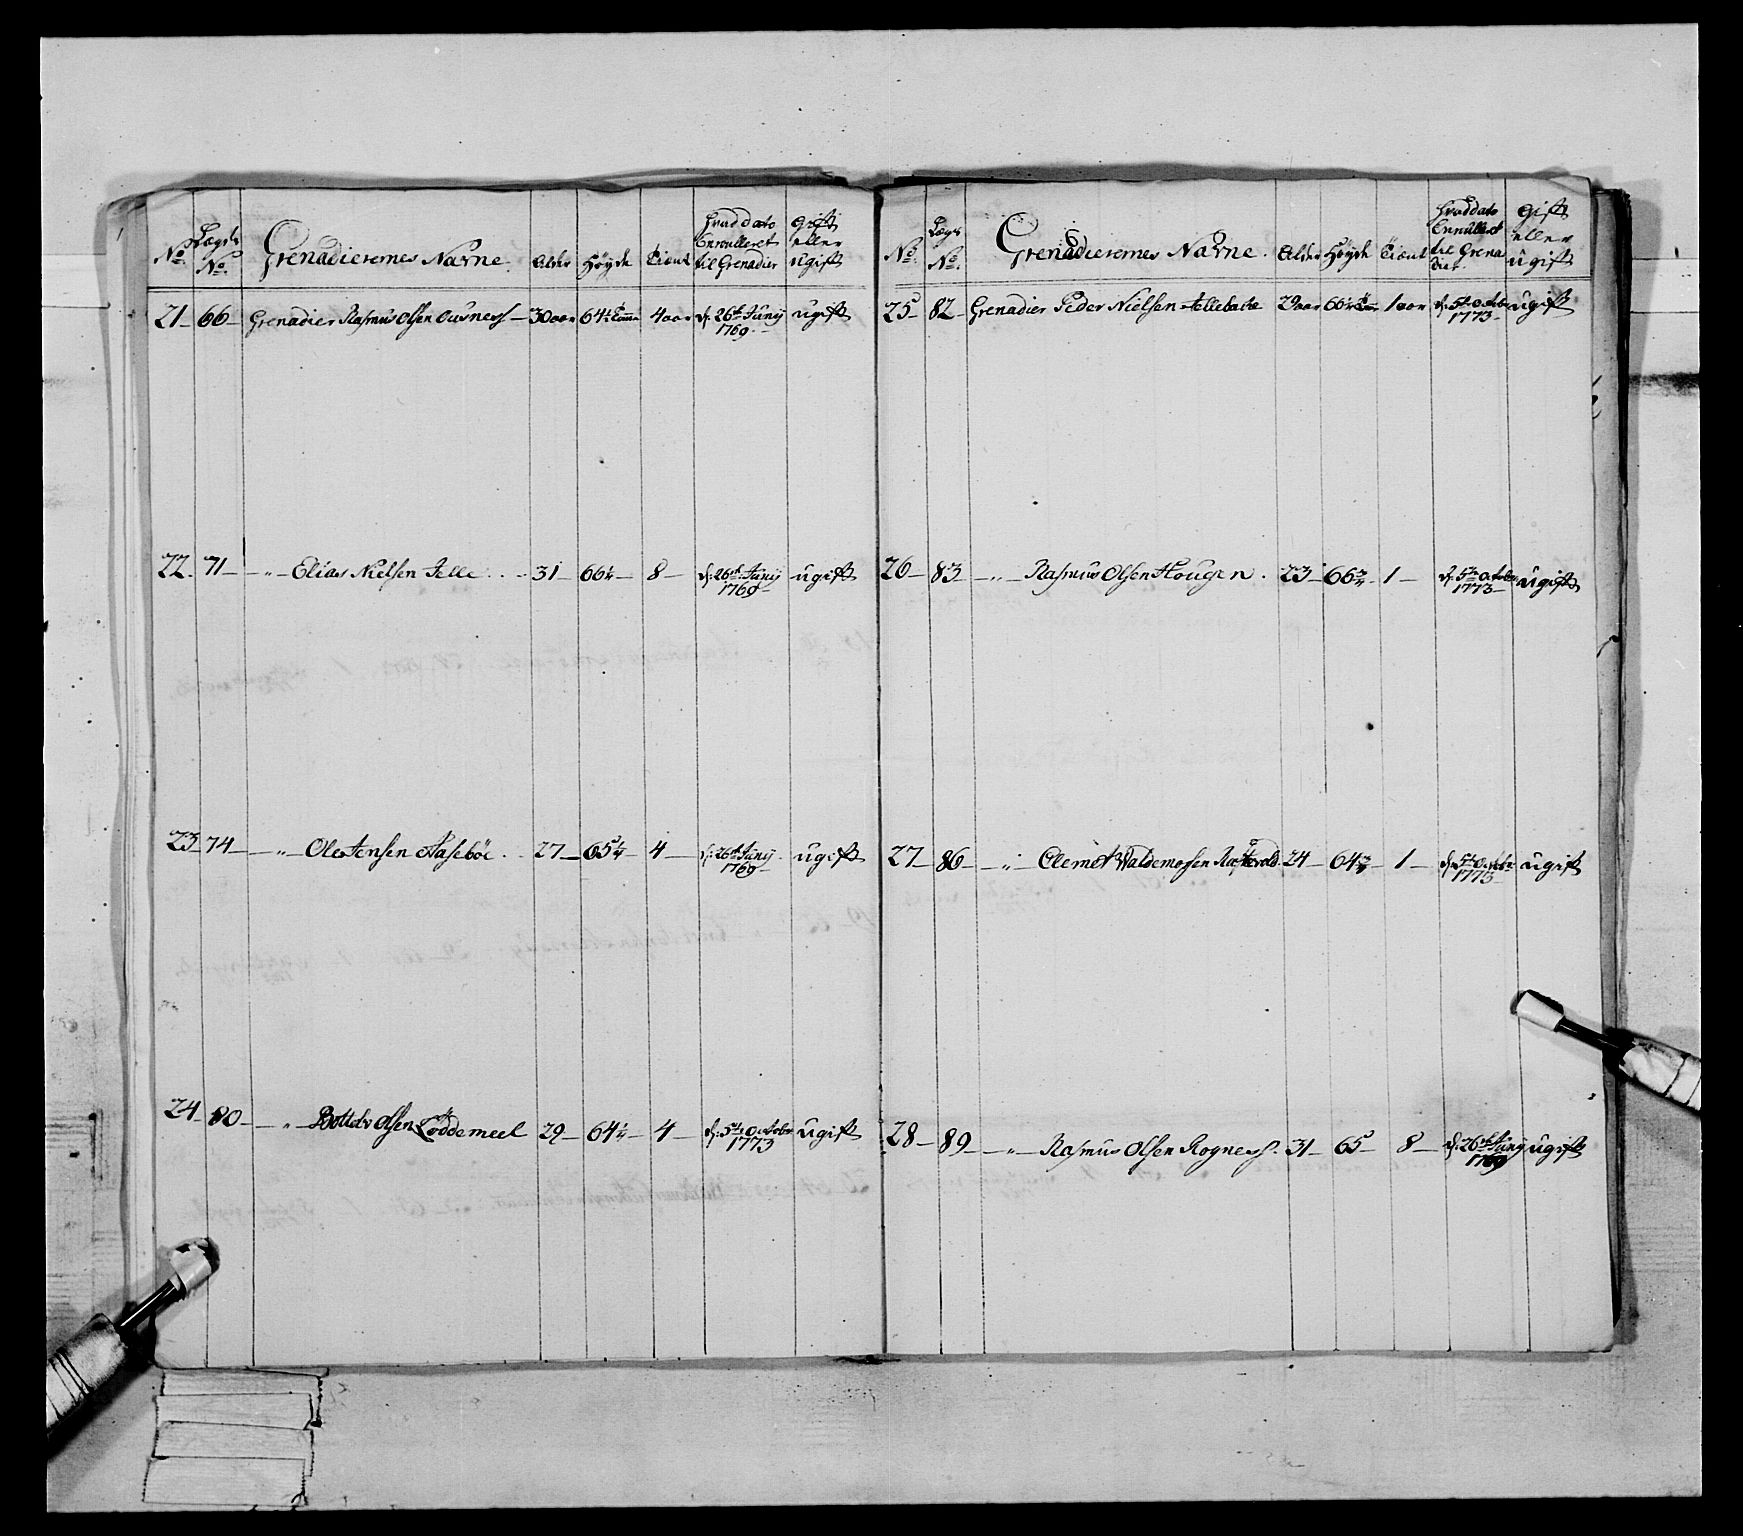 No. Lægds No. Grenadierernes Navne. Alder Høyde Tient Hvad dato Enrulleret til Grenadier Gift eller ugift
21 - 66 - Grenadier Rasmus Olsen Ousness - 30 aar 64 1/4 Tomme 4 aar d: 26de Junij 1769 - ugift
22 - 71 - -"- Elias Nielsen Telle . . - 31 - 66 1/4 - 8 - d: 26de Junij 1769 - ugift
23 - 74 - -"- Ole Jensen Aasebøe . . 27 - 65 1/4 - 4 - d: 26de Junij 1769 - ugift
24 - 80 - -"- Bottolv Olsen Loddemeel 29 - 64 1/4 - 4 - d: 5te Octobr 1773 ugift
No. Lægds No. Grenadierernes Navne. Alder Høyde Tient Hvad dato Enrulleret til Grenadier Gift eller ugift
25 - 82 - Grenadier Peder Nielsen 29 aar 1 aar d: 5te Octobr 1773 - ugift
26 - 83 - -"- Rasmus Olsen Hougen . 23 - 66 3/4 - 1 - d: 5te Octobr 1773 - ugift
27 - 86 - -"- Clemet Waldemosen 24 - 64 3/4 - 1 - d: 5te Octobr 1773 - ugift
28 - 89 - -"- Rasmus Olsen Rogness . 31 - 65 - 8 - d: 26de Junij 1769 ugift